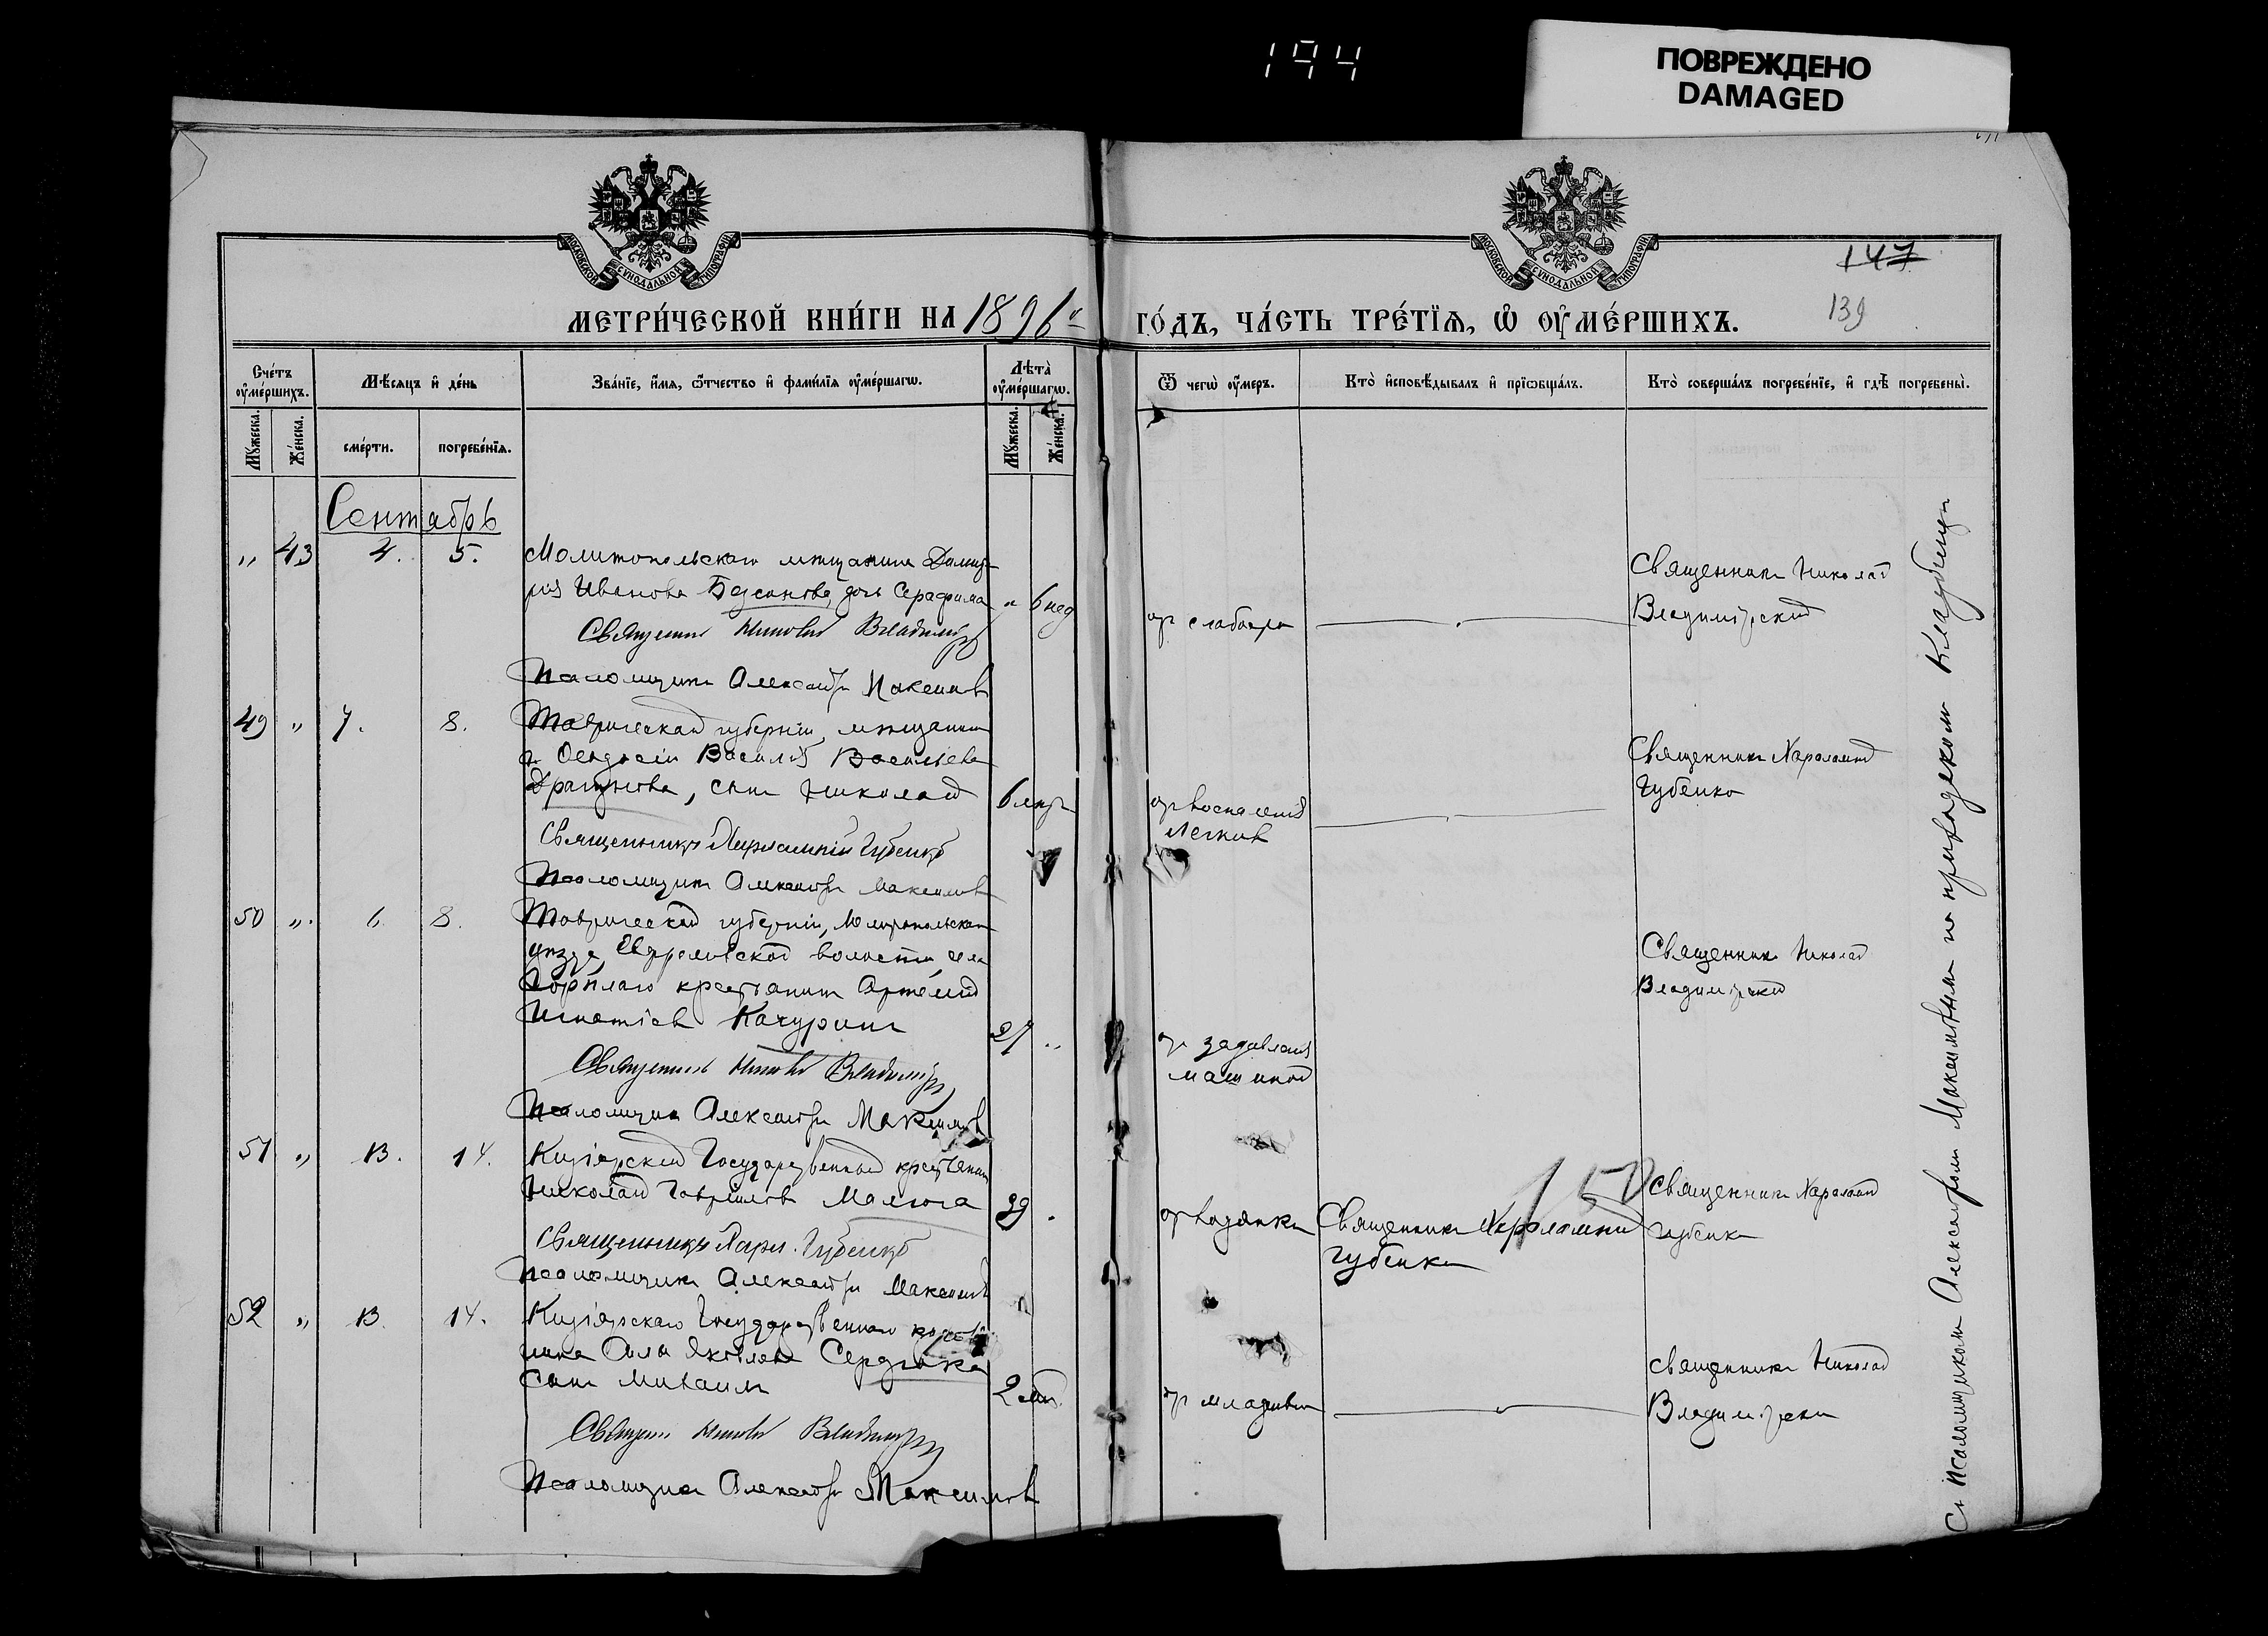 194
ПОВРЕЖДЕНО
DAMAGED
МОСКОВСКОЙ СѴНОДАЛЬНОЙ ТИПОГРАФІИ
МОСКОВСКОЙ СѴНОДАЛЬНОЙ ТИПОГРАФІИ
147
139
МЕТРИ́ЧЕСКОЙ КНИ́ГИ НА 1896й
ГО́ДЪ, ЧА́СТЬ ТРЕ́ТЇѦ, Ѽ ОУМЕ́РШИХЪ.
Сче́тъ оумершихъ.
Мужеска. Же́нска.
Мѣсяцъ и де́нь
сме́рти. погребе́нїѧ.
Зва́нїе, и҆мѧ, ѿтчество и фами́лїѧ оуме́ршагѡ.
Лѣта̀ оуме́ршагѡ.
Мужеска. Же́нска.
Ѿ чегѡ̀ оумеръ.
Кто̀ исповѣдывалъ и прїѡбща́лъ.
Кто̀ соверша́лъ погребе́нїе, и гдѣ погребены̀.
Сентябрь
„ 43 4. 5.
Мелитопольскаго мѣщанина Димит
рія Иванова дочь Серафима „ 6 нед
Священникъ Николай Владимірскій
Псаломщикъ Александръ Максимовъ
отъ слабости
Священникъ Николай
Владимірскій
49 „ 7. 8.
Таврической губерніи, мѣщанина
г. Ѳеодосіи Василія Васильева
Драгунова, сынъ Николай 6 мѣс
Священникъ Харлампій Губенко
Псаломщикъ Александръ Максимовъ
отъ воспаленія
легкихъ
Священникъ Харалампій
Губенко
50 „ 6 8.
Таврической губерніи, Мелитопольскаго
уѣзда, волости, села
крестьянинъ Артемій
Игнатіевъ Качуринъ 27 „
Священникъ Николай Владимірскій
Псаломщикъ Александръ Максимовъ
отъ задавленія
машиной
Священникъ Николай
Владимірскій
51 „ 13. 14.
Кизіярскій Государственный крестьянинъ
Николай Гавріиловъ Малюга 39 „
Священникъ Харл. Губенко
Псаломщикъ Александръ Максимовъ
отъ водянки
Священникъ Харлампій
Губенко
150
Священникъ Харалампій
Губенко
52 „ 13. 14.
Кизіярскаго Государственнаго крестья
нина Яковлева Сердюка
сынъ Михаилъ 2 мѣс.
Священникъ Николай Владимірскій
Псаломщикъ Александръ Максимовъ
отъ младенч
Священникъ Николай
Владимірскій
Съ псаломщикомъ Александромъ Максимовымъ на приходскомъ Кладбищѣ